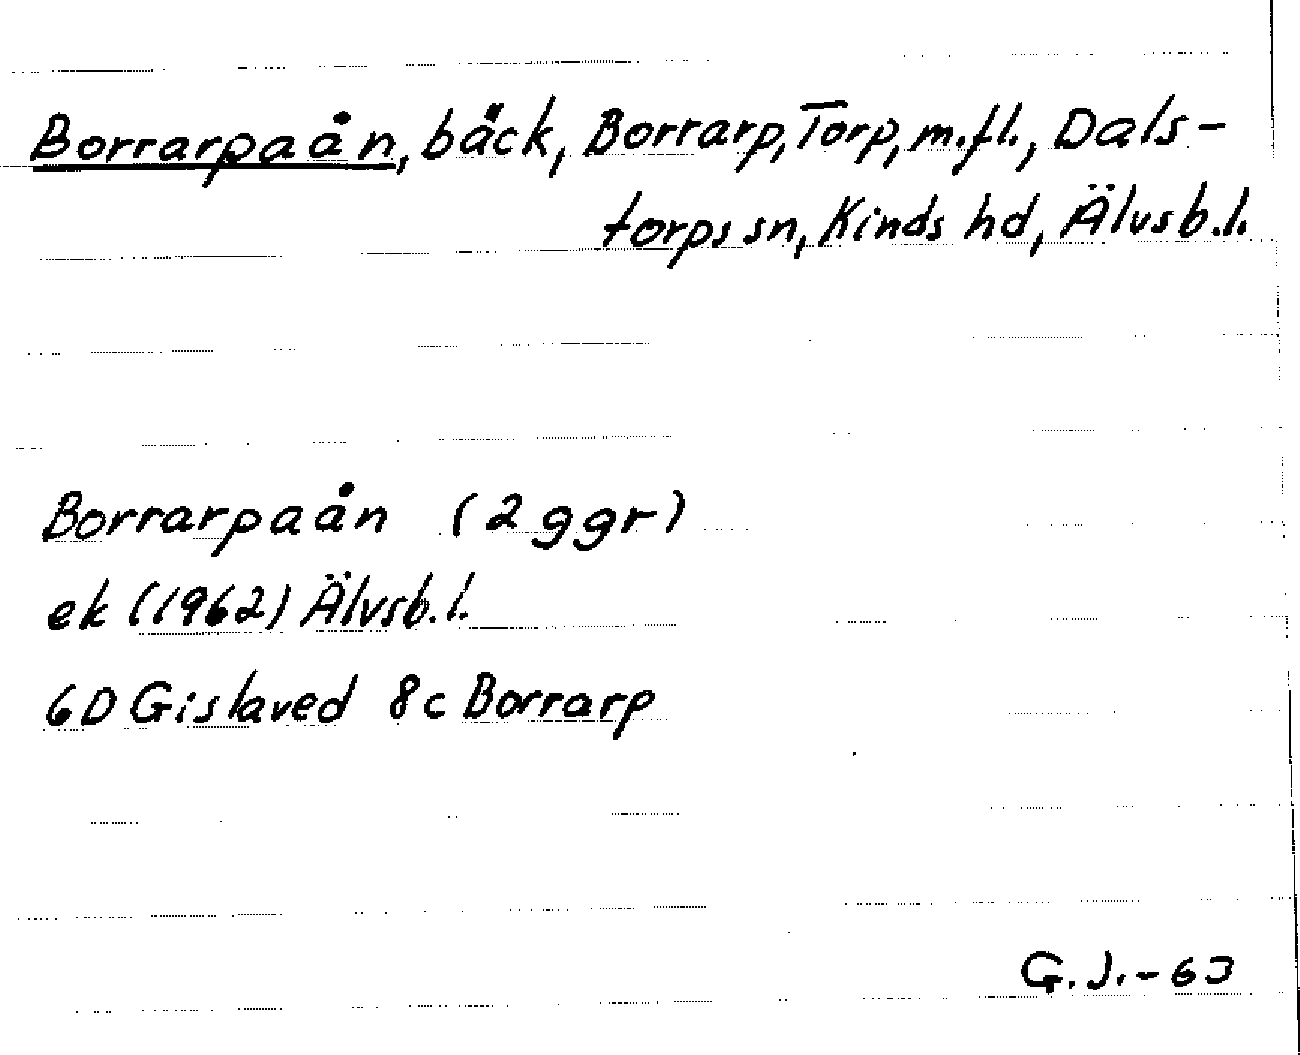 Borrarpaån, bäck, Borrarp, Torp, m.fl., Dals-
torps sn, Kinds hd, Älvsb.l.
Borrarpaån (2 ggr)
ek (1962) Älvsb.l.
6D Gislaved 8c Borrarp
G.J.-63